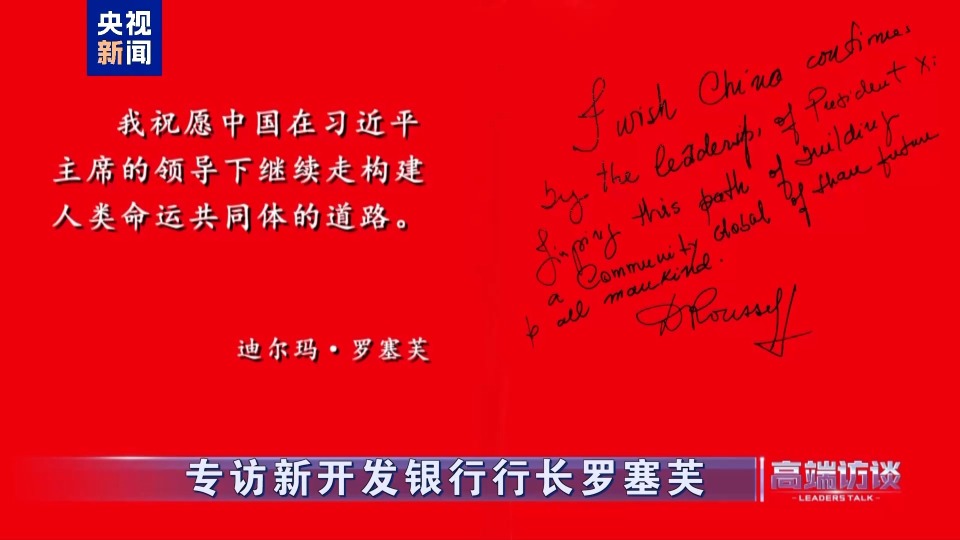 央视
新闻
我祝愿中国在习近平
主席的领导下继续走构建
人类命运共同体的道路。
迪尔玛·罗塞芙
I wish China continues
by the leadership of President Xi
Jinping this path of building
a Community Global of share future
all mankind.
DRousseff
专访新开发银行行长罗塞芙
高端访谈
LEADERS TALK